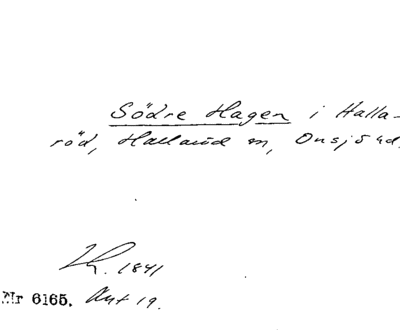 Södre Hagen i Halla-
röd, Hallaröd sn, Onsjö hd.
1841
Nr 6165. Akt 19.